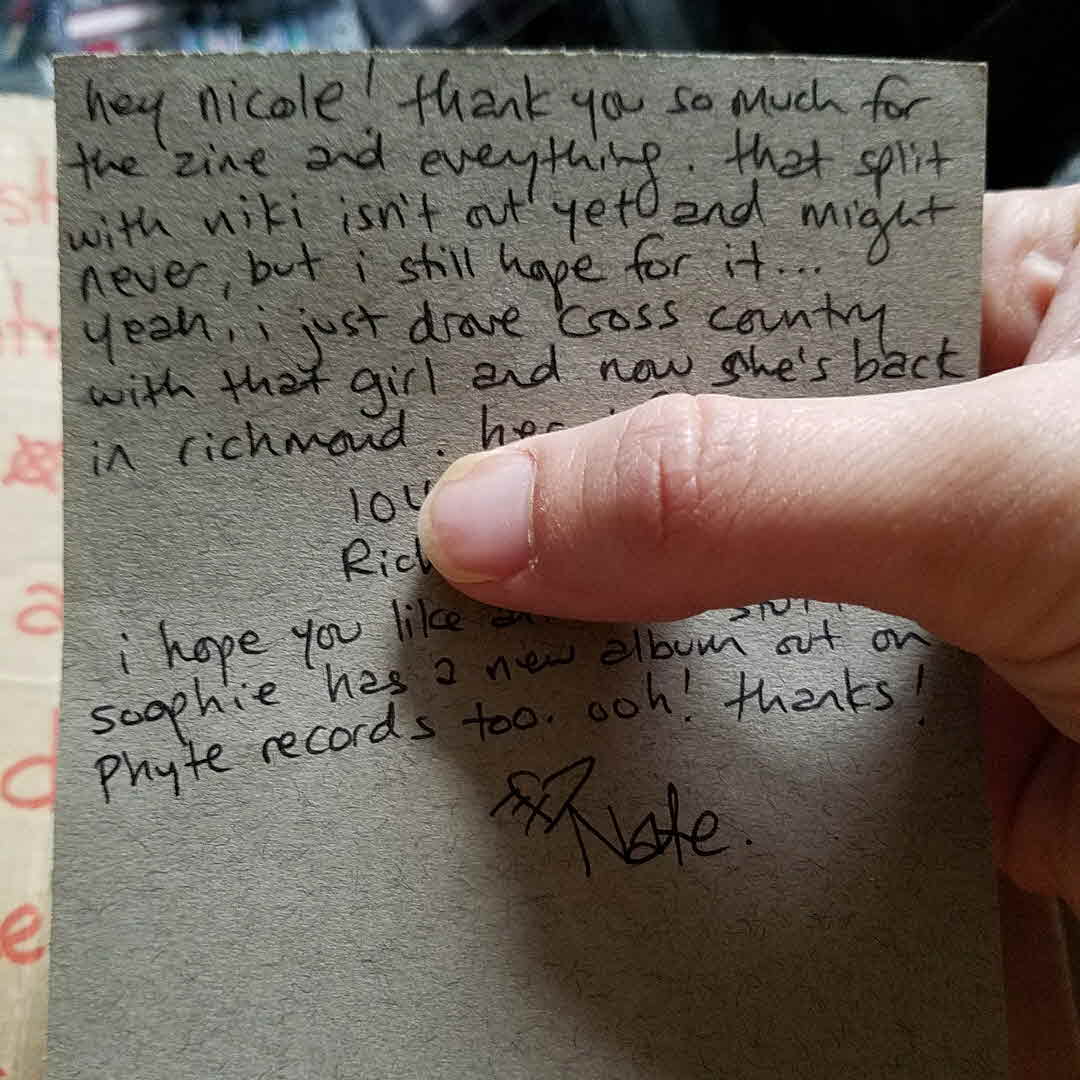 hey nicole! thank you so much for
the zine and everything. that split
with niki isn't out yet and might
never, but i still hope for it...
yeah, i just drove cross country
with that girl and now she's back
in richmond.
i hope you like
sooophie has a new album out on
Phyte records too. ooh! thanks!
Nate.